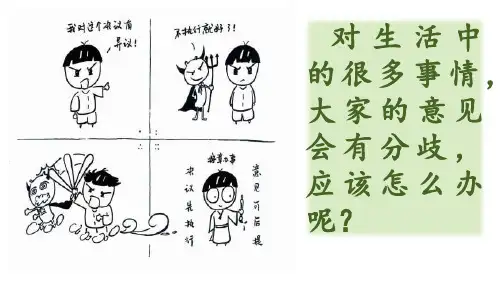 我对这个决议有
异议!
不执行就好了!
按章办事
决议先执行
意见可后提
对生活中
的很多事情，
大家的意见
会有分歧，
应该怎么办
呢？